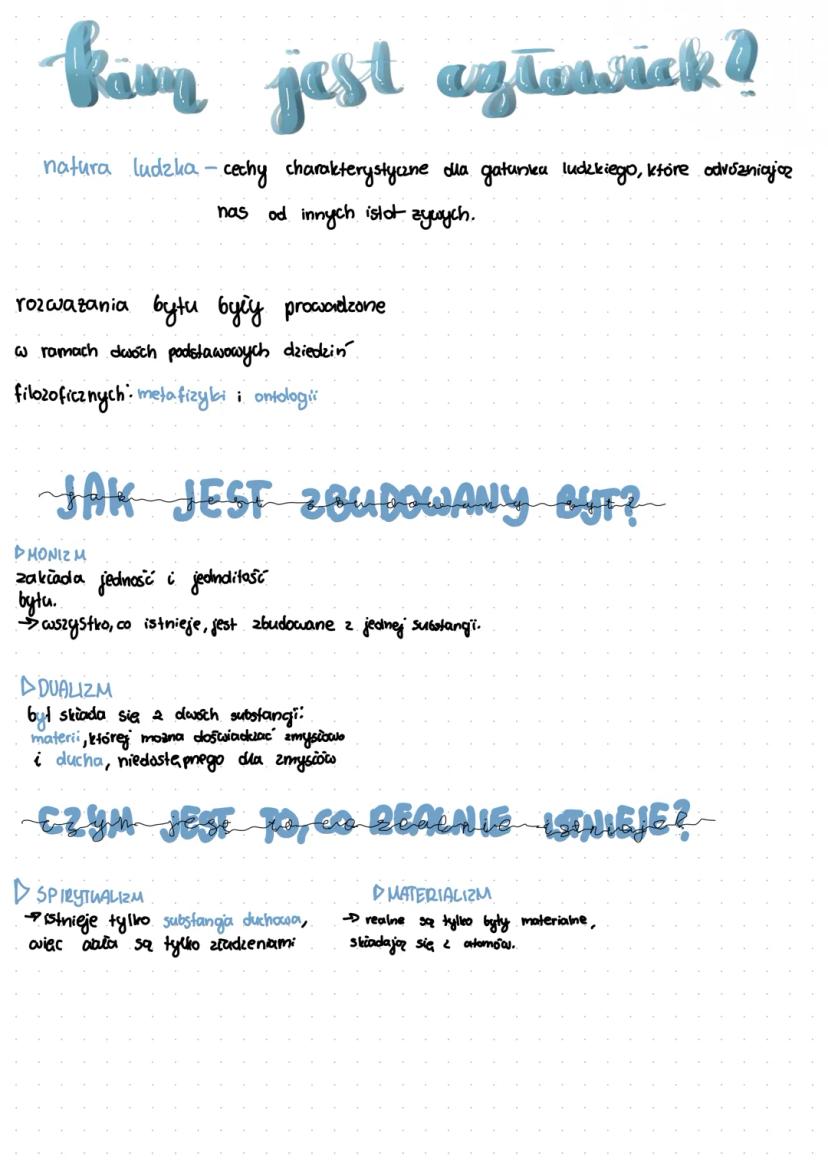 kim jest człowiek?
natura ludzka – cechy charakterystyczne dla gatunku ludzkiego, które odróżniają
nas od innych istot żywych.
rozważania bytu były prowadzone
w ramach dwóch podstawowych dziedzin
filozoficznych: metafizyki i ontologii
JAK JEST ZBUDOWANY BYT?
▷ MONIZM
zakłada jedność i jednolitość
bytu.
→ wszystko, co istnieje, jest zbudowane z jednej substancji.
▷ DUALIZM
byt składa się z dwóch substancji:
materii, której można doświadczać zmysłowo
i ducha, niedostępnego dla zmysłów
CZYM JEST TO, CO REALNIE ISTNIEJE?
▷ SPIRYTUALIZM
→ istnieje tylko substancja duchowa,
więc ciała są tylko złudzeniami
▷ MATERIALIZM
→ realne są tylko byty materialne,
składają się z atomów.